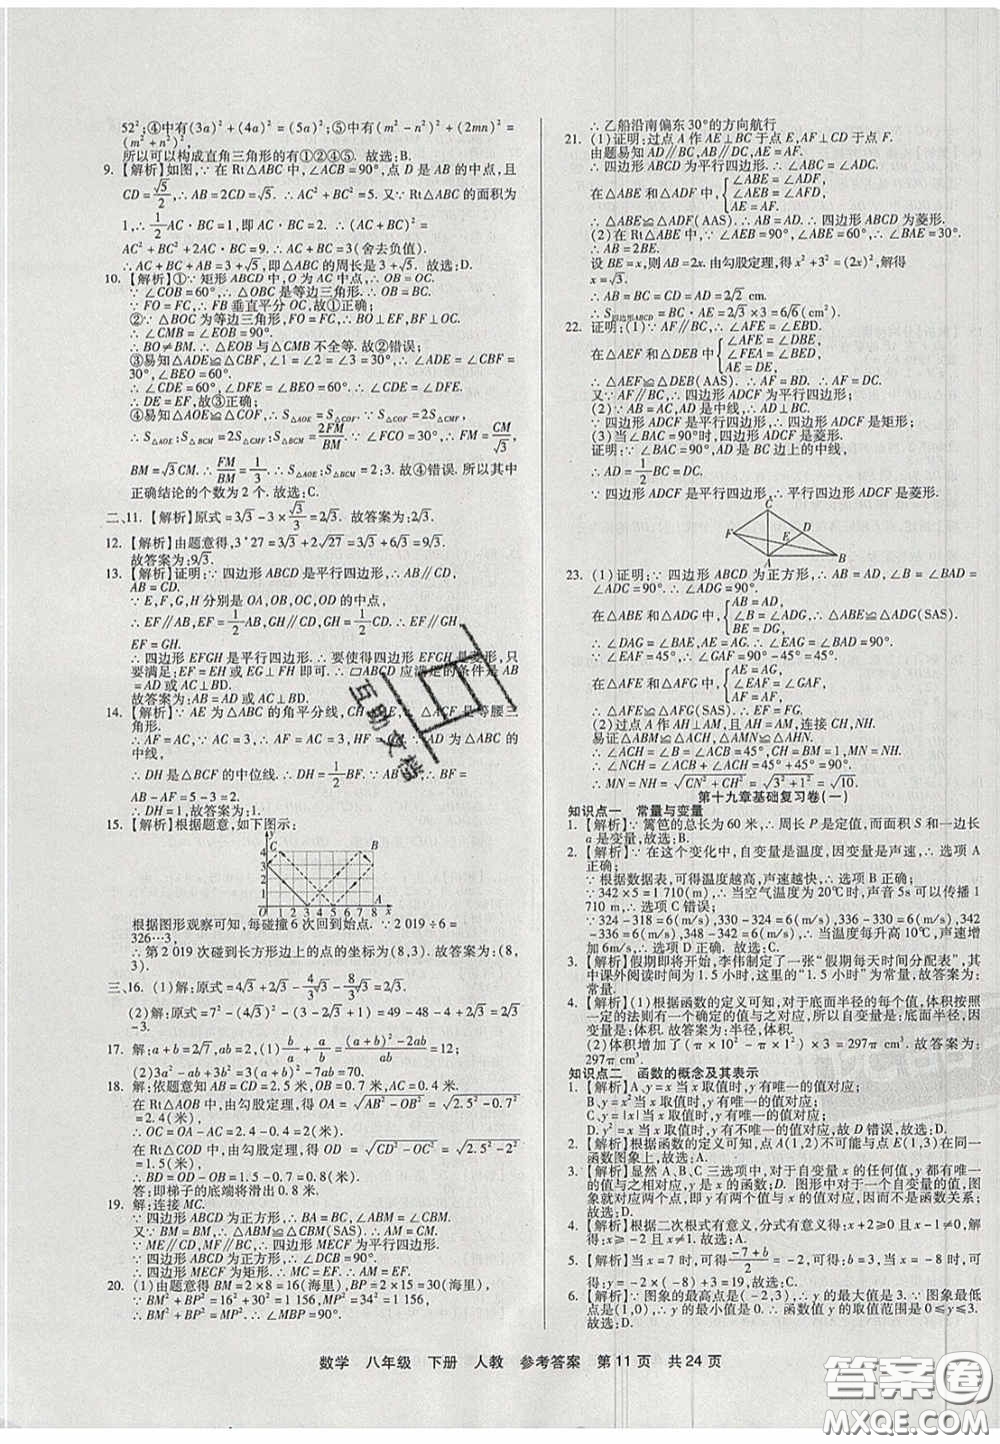 52²;④中有(3a)²+(4a)²=(5a)²;⑤中有(m²-n²)²+(2mn)²=
(m²+n²)²,
所以可以构成直角三角形的有①②④⑤. 故选:B.
9. 【解析】如图,∵在Rt△ABC中,∠ACB=90°,点D是AB的中点,且
CD=√5/2,∴AB=2CD=√5. 又∵Rt△ABC的面积为
1,∴1/2 AC·BC=1,即AC·BC=2. ∴(AC+BC)²=
AC²+BC²+2AC·BC=9. ∴AC+BC=3(舍去负值).
∴AC+BC+AB=3+√5,即△ABC的周长是3+√5. 故选:D.
10. 【解析】①∵矩形ABCD中,O为AC中点,∴OB=OC.
∵∠COB=60°,∴△OBC是等边三角形,∴OB=BC.
∵FO=FC,∴FB垂直平分OC,故①正确;
②∵△BOC为等边三角形,FO=FC,∴BO⊥EF,BF⊥OC.
∴∠CMB=∠EOB=90°,
∴BO≠BM. ∴△EOB与△CMB不全等. 故②错误;
③易知△ADE≌△CBF,∠1=∠2=∠3=30°,∴∠ADE=
∠CBF=30°,∠BEO=60°.
∴∠CDE=60°,∠DFE=∠BEO=60°. ∴∠CDE=∠DFE.
∴DE=EF,故③正确;
④易知△AOE≌△COF,∴S△AOE=S△COF. ∵S△COF=2S△CMF,
∴S△AOE:S△BCM=2S△CMF:S△BCM=2FM/BM. ∵∠FCO=30°,∴FM=CM/√3,
BM=√3CM. ∴FM/BM=1/3. ∴S△AOE:S△BCM=2:3. 故④错误. 所以其中
正确结论的个数为2个. 故选:C.
二、11. 【解析】原式=3√3-3×√3/3=2√3. 故答案为:2√3.
12. 【解析】由题意得,3*27=3√3+2√27=3√3+6√3=9√3.
故答案为:9√3.
13. 【解析】证明:∵四边形ABCD是平行四边形,∴AB∥CD,
AB=CD.
∵E,F,G,H分别是OA,OB,OC,OD的中点,
∴EF∥AB,EF=1/2AB,GH∥CD,GH=1/2CD. ∴EF∥GH,
EF=GH.
∴四边形EFGH是平行四边形. ∴要使得四边形EFGH是菱形,只
要满足:EF=EH或EH=EG或EF=EG. ∴▱ABCD应满足的条件是AB
=AD或AC⊥BD.
故答案为:AB=AD或AC⊥BD.
14. 【解析】∵AE为△ABC的角平分线,CH⊥AE,∴△ACF是等腰三
角形.
∴AF=AC,∵AC=3,∴AF=AC=3,HF=CH. ∵AD为△ABC的
中线,
∴DH是△BCF的中位线. ∴DH=1/2BF. ∵AB=5,∴BF=AB
-AF=5-3=2. ∴DH=1,故答案为:1.
15. 【解析】根据题意,如下图示:
y
4
3
2
1
C
B
O 1 2 3 4 5 6 7 8 A x
根据图形观察可知,每碰撞6次回到始点. ∵2 019÷6=
336···3,
∴第2 019次碰到长方形边上的点的坐标为(8,3). 故答案为:(8,
3).
三、16. (1)解:原式=4√3+2√3-4/3√3-8/3√3=2√3.
(2)解:原式=7²-(4√3)²-(3-2√3+1)=49-48-4+2√3=2√3
-3.
17. 解:a+b=2√7,ab=2,(1)b/a+a/b=((a+b)²-2ab)/ab=12;
(2)3a²-ab+3b²=3(a+b)²-7ab=70.
18. 解:依题意知AB=CD=2.5米,OB=0.7米,
在Rt△AOB中,由勾股定理得AO=√(AB²-OB²)=√(2.5²-0.7²)
=2.4(米),
∴OC=OA-AC=2.4-0.4=2(米).
在Rt△COD中,由勾股定理得OD=√(CD²-OC²)=√(2.5²-2²)
=1.5(米),
∴BD=OD-OB=1.5-0.7=0.8(米).
答:即梯子的底端将滑出0.8米.
19. 解:连接MC.
∵四边形ABCD为正方形,∴BA=BC,∠ABM=∠CBM.
又∵BM=BM,∴△ABM≌△CBM(SAS). ∴AM=CM.
∵ME∥CD,MF∥BC,∴四边形MECF为平行四边形.
∵四边形ABCD为正方形,∴∠DCB=90°.
∴四边形MECF为矩形. ∴MC=EF. ∴AM=EF.
20. (1)由题意得BM=2×8=16(海里),BP=2×15=30(海里),
∵BM²+BP²=16²+30²=1 156,MP²=34²=1 156,
∴BM²+BP²=MP². ∴∠MBP=90°.
∴乙船沿南偏东30°的方向航行
21. 【解析】(1)证明:过点A作AE⊥BC于点E,AF⊥CD于点F.
由题易知AD∥BC,AB∥DC,AE=AF.
∴四边形ABCD为平行四边形. ∴∠ABC=∠ADC.
在△ABE和△ADF中,{∠ABE=∠ADF,
∠AEB=∠AFD,
AE=AF.
∴△ABE≌△ADF(AAS). ∴AB=AD. ∴四边形ABCD为菱形.
(2)在Rt△ABE中,∠AEB=90°,∠ABC=60°,∴∠BAE=30°.
∴AB=2BE.
设BE=x,则AB=2x. 由勾股定理,得x²+3²=(2x)²,解得
x=√3.
∴BC=AB=AD=2√3 cm.
∴S四边形ABCD=BC·AE=2√3×3=6√3(cm²).
22. 证明:(1)∵AF∥BC,∴∠AFE=∠EBD.
在△AEF和△DEB中{∠AFE=∠DBE,
∠FEA=∠BED,
AE=DE.
∴△AEF≌△DEB(AAS). ∴AF=BD. ∴AF=DC.
又∵AF∥BC,∴四边形ADCF为平行四边形.
(2)∵AB=AC,AD是中线,∴AD⊥BC.
∵四边形ADCF是平行四边形,∴四边形ADCF是矩形;
(3)当∠BAC=90°时,四边形ADCF是菱形.
证明:∵∠BAC=90°,AD是△ABC的BC边上的中线,
∴AD=1/2BC=DC.
∵四边形ADCF是平行四边形,∴四边形ADCF是菱形.
C
F
D
E
A
B
23. (1)证明:∵四边形ABCD为正方形,∴AB=AD,∠B=∠BAD
=∠ADC=∠ADG=90°.
在△ABE和△ADG中,{AB=AD,
∠B=∠ADG,
BE=DG.
∴△ABE≌△ADG(SAS).
∴∠DAG=∠BAE,AE=AG. ∴∠EAG=∠BAD=90°.
∵∠EAF=45°,∴∠GAF=45°.
在△AFE和△AFG中,{AE=AG,
∠EAF=∠GAF,
AF=AF.
∴△AFE≌△AFG(SAS).
∴EF=GF.
(2)过点A作AH⊥AM,且AH=AM,连接CH,NH.
易证△ABM≌△ACH,△AMN≌△AHN.
∴∠ACH=∠B=∠ACB=45°,CH=BM=1,MN=NH.
∴∠NCH=45°+45°=90°.
∴MN=NH=√(CN²+CH²)=√(3²+1²)=√10.
第十九章基础复习卷(一)
知识点一 常量与变量
1. 【解析】∵篱笆的总长为60米,∴周长P是定值,而面积S和一边长
a是变量,故选:B.
2. 【解析】∵在这个变化中,自变量是温度,因变量是声速,∴选项A
正确;
∵根据数据表,可得温度越高,声速越快,∴选项B正确;
∵342×5=1 710(m),∴当空气温度为20℃时,声音5s可以传播1
710 m,∴选项C错误;
∵324-318=6(m/s),330-324=6(m/s),336-330=6(m/s),342
-336=6(m/s),348-342=6(m/s),∴当温度每升高10℃,声速
增加6m/s,∴选项D正确. 故选:C.
3. 【解析】假期即将开始,李伟制定了一张“假期每天时间分配表”,其
中课外阅读时间为1.5小时,这里的“1.5小时”为常量. 故答案为:
常量.
4. 【解析】(1)根据函数的定义可知,对于底面半径的每个值,体积按照
一定的法则有一个确定的值与之对应,所以自变量是:底面半径,因
变量是:体积. 故答案为:半径,体积.
(2)体积增加了(π×10²-π×1²)×3=297π cm³. 故答案为:
297π cm³.
知识点二 函数的概念及其表示
1. 【解析】A、y=x当x取值时,y有唯一的值对应;
B、y=x²当x取值时,y有唯一的值对应;
C、y=|x|当x取值时,y有唯一的值对应;
D、y²=x当x取值时,y有不唯一的值对应. 故D错误,故选:D.
2. 【解析】根据函数的定义可知,点A(1,2)不可能与点E(1,3)在同一
函数图象上,故选:A.
3. 【解析】显然A、B、C三选项中,对于自变量x的任何值,y都有唯一
的值与之相对应,y是x的函数;D. 图形中对于一个自变量x的值,图
象就对应两个点,即y有两个值与x的值对应,因而不是函数关系;
故选:D.
4. 【解析】根据二次根式有意义,分式有意义得:x+2≥0且x-1≠0,解
得:x≥-2且x≠1. 故选:A.
5. 【解析】当x=7时,可得(-7+b)/2=-2,可得:b=3,当x=-8时,可
得:y=-2×(-8)+3=19,故选:C.
6. 【解析】∵图象的最高点是(-2,3),∴y的最大值是3. ∵图象最低
点是(1,0),∴y的最小值是0,∴函数值y的取值范围是0≤y≤3.
故选:D.
数学 八年级 下册 人教 参考答案 第11页 共24页
互助文档
答案圈
MXQE.COM